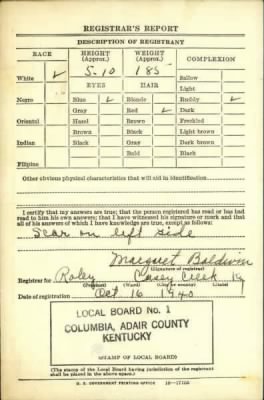 REGISTRAR'S REPORT
DESCRIPTION OF REGISTRANT
RACE HEIGHT (Approx.) WEIGHT (Approx.) COMPLEXION
White ✓ 5-10 185 Sallow
EYES HAIR Light
Negro Blue ✓ Blonde Ruddy ✓
Gray Red ✓ Dark
Oriental Hazel Brown Freckled
Brown Black Light brown
Indian Black Gray Dark brown
Bald Black
Filipino
Other obvious physical characteristics that will aid in identification
I certify that my answers are true; that the person registered has read or has had
read to him his own answers; that I have witnessed his signature or mark and that
all of his answers of which I have knowledge are true, except as follows:
Scar on left side
Margaret Baldwin
(Signature of registrar)
Registrar for Roley Casey Creek Ky
(Precinct) (Ward) (City or county) (State)
Date of registration Oct 16 1940
LOCAL BOARD No. 1
COLUMBIA, ADAIR COUNTY
KENTUCKY
(STAMP OF LOCAL BOARD)
(The stamp of the Local Board having jurisdiction of the registrant
shall be placed in the above space.)
U. S. GOVERNMENT PRINTING OFFICE